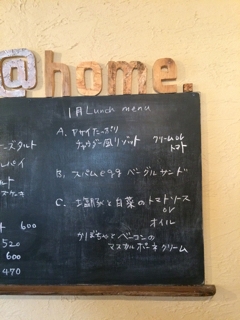 @home.
1月 Lunch menu
A. ヤサイたっぷり
チャウダー風リゾット
クリームor
トマト
B. スパムegg ベーグルサンド
C. 塩豚と白菜のトマトソース
or
オイル
かぼちゃとベーコンの
マスカルポーネクリーム
ーズタルト
レパイ
600
520
600
470